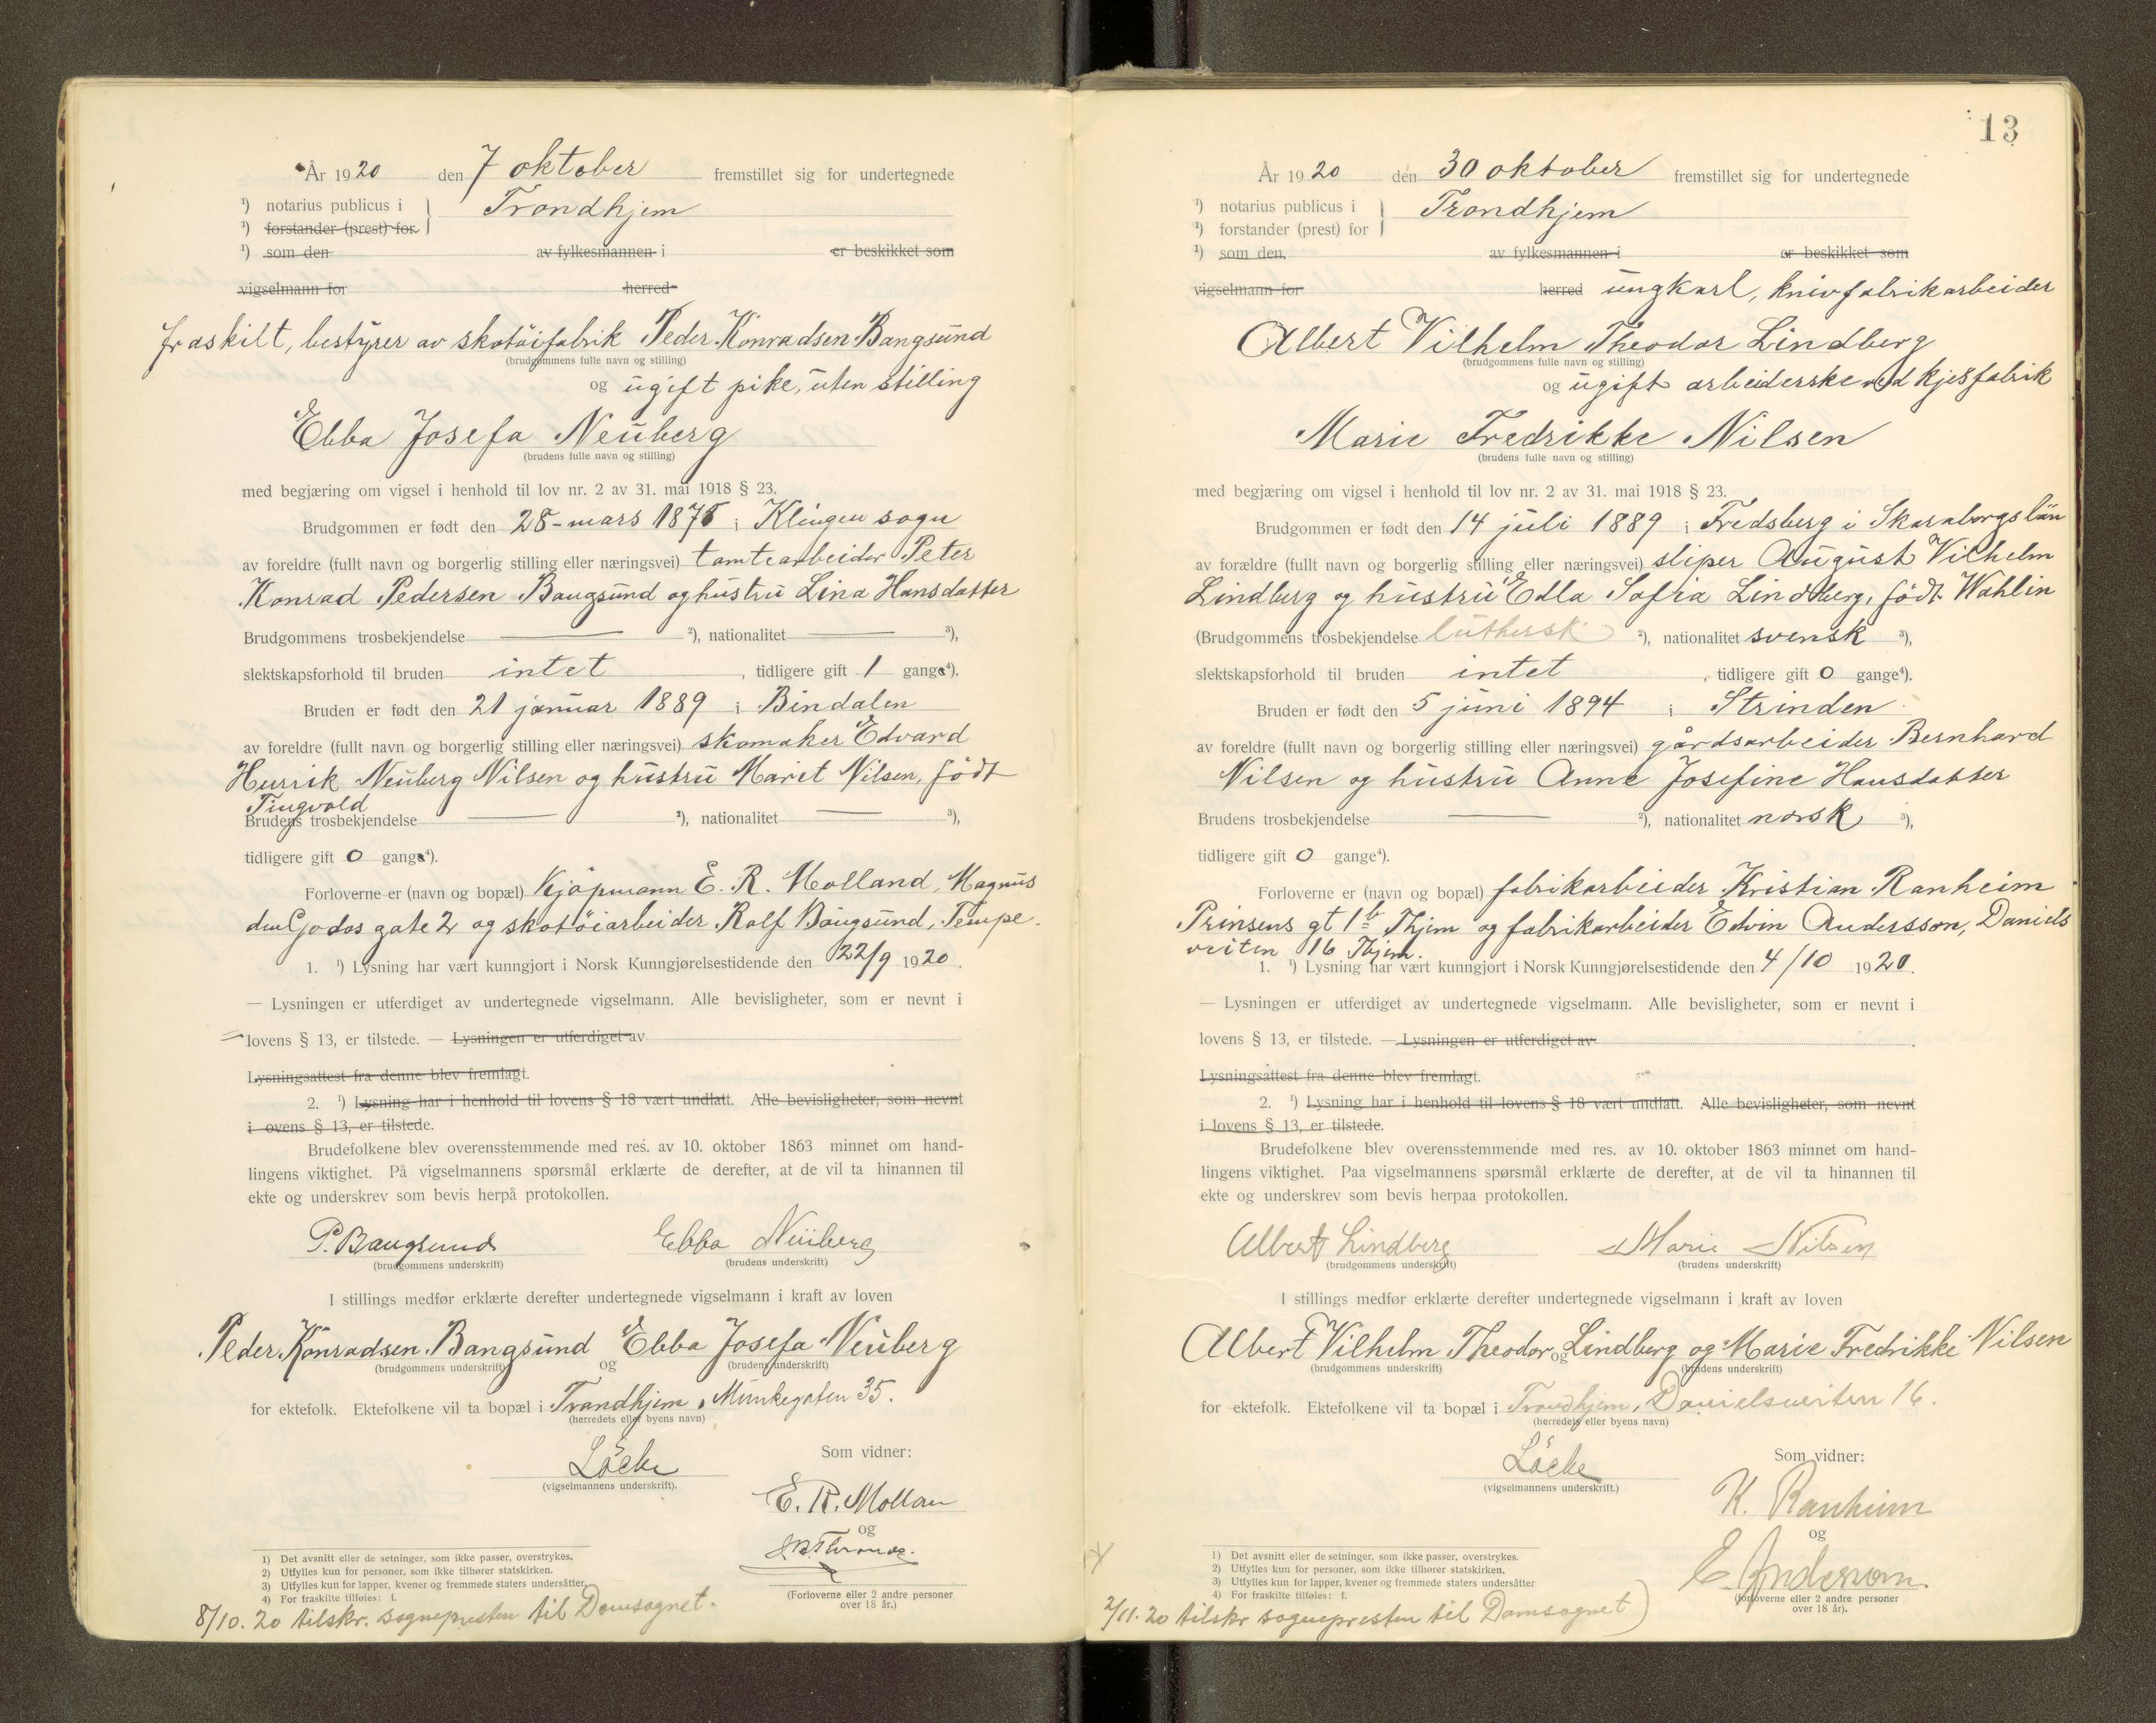 År 1920 den 7 oktober fremstillet sig for undertegnede
¹) notarius publicus i Trondhjem
¹) forstander (prest) for
¹) som den av fylkesmannen i er beskikket som
vigselmann for herred
fraskilt, bestyrer av skotöifabrik Peder Konradsen Bangsund
(brudgommens fulle navn og stilling)
og ugift pike, uten stilling
Ebba Josefa Neuberg
(brudens fulle navn og stilling)
med begjæring om vigsel i henhold til lov nr. 2 av 31. mai 1918 § 23.
Brudgommen er født den 28 mars 1878 i Klingen sogn
av foreldre (fullt navn og borgerlig stilling eller næringsvei) tomtearbeider Peter
Konrad Pedersen Bangsund og hustru Lina Hansdatter
Brudgommens trosbekjendelse ²), nationalitet ³),
slektskapsforhold til bruden intet, tidligere gift 1 gange⁴).
Bruden er født den 21 januar 1889 i Bindalen
av foreldre (fullt navn og borgerlig stilling eller næringsvei) skomaker Edvard
Henrik Neuberg Nilsen og hustru Marit Nilsen, födt
Tingvold
Brudens trosbekjendelse ²), nationalitet ³),
tidligere gift 0 gange⁴).
Forloverne er (navn og bopæl) Kjöpmann E. R. Molland, Magnus
den Godes gate 2 og skotöiarbeider Rolf Bangsund, Tempe.
1. ¹) Lysning har vært kunngjort i Norsk Kunngjørelsestidende den 22/9 1920.
— Lysningen er utferdiget av undertegnede vigselmann. Alle bevisligheter, som er nevnt i
lovens § 13, er tilstede. — Lysningen er utferdiget av
Lysningsattest fra denne blev fremlagt.
2. ¹) Lysning har i henhold til lovens § 18 vært undlatt. Alle bevisligheter, som nevnt
i ovens § 13, er tilstede.
Brudefolkene blev overensstemmende med res. av 10. oktober 1863 minnet om hand-
lingens viktighet. På vigselmannens spørsmål erklærte de derefter, at de vil ta hinannen til
ekte og underskrev som bevis herpå protokollen.
P. Bangsund Ebba Neuberg
(brudgommens underskrift) (brudens underskrift)
I stillings medfør erklærte derefter undertegnede vigselmann i kraft av loven
Peder Konradsen Bangsund og Ebba Josefa Neuberg
(brudgommens underskrift) (brudens underskrift)
for ektefolk. Ektefolkene vil ta bopæl i Trondhjem, Munkegaten 35.
(herredets eller byens navn)
Löcke Som vidner:
(vigselmannens underskrift).
E. R. Mollan
og
(Forloverne eller 2 andre personer
over 18 år.)
1) Det avsnitt eller de setninger, som ikke passer, overstrykes.
2) Utfylles kun for personer, som ikke tilhører statskirken.
3) Utfylles kun for lapper, kvener og fremmede staters undersåtter.
4) For fraskilte tilføies: f.
8/10. 20 tilskr. sognepresten til Domsognet.
13
År 1920 den 30 oktober fremstillet sig for undertegnede
¹) notarius publicus i Trondhjem
¹) forstander (prest) for
¹) som den av fylkesmannen i er beskikket som
vigselmann for herred ungkarl, knivfabrikarbeider
Albert Vilhelm Theodor Lindberg
(brudgommens fulle navn og stilling)
og ugift arbeiderske ved kjexfabrik
Marie Fredrikke Nilsen
(brudens fulle navn og stilling)
med begjæring om vigsel i henhold til lov nr. 2 av 31. mai 1918 § 23.
Brudgommen er født den 14 juli 1889 i Fredsberg i Skaraborgs län
av forældre (fullt navn og borgerlig stilling eller næringsvei) sliper August Vilhelm
Lindberg og hustru Edla Sofia Lindberg, födt Wahlin
(Brudgommens trosbekjendelse luthersk ²), nationalitet svensk ³),
slektskapsforhold til bruden intet, tidligere gift 0 gange⁴).
Bruden er født den 5 juni 1894 i Strinden
av foreldre (fullt navn og borgerlig stilling eller næringsvei) gårdsarbeider Bernhard
Nilsen og hustru Anne Josefine Hansdatter
Brudens trosbekjendelse ²), nationalitet norsk ³),
tidligere gift 0 gange⁴).
Forloverne er (navn og bopæl) fabrikarbeider Kristian Ranheim
Prinsens gt 1b Thjem og fabrikarbeider Edvin Andersson, Daniels
veiten 16 Thjem.
1. ¹) Lysning har vært kunngjort i Norsk Kunngjørelsestidende den 4/10 1920.
— Lysningen er utferdiget av undertegnede vigselmann. Alle bevisligheter, som er nevnt i
lovens § 13, er tilstede. — Lysningen er utferdiget av
Lysningsattest fra denne blev fremlagt.
2. ¹) Lysning har i henhold til lovens § 18 vært undlatt. Alle bevisligheter, som nevnt
i lovens § 13, er tilstede.
Brudefolkene blev overensstemmende med res. av 10. oktober 1863 minnet om hand-
lingens viktighet. Paa vigselmannens spørsmål erklærte de derefter, at de vil ta hinannen til
ekte og underskrev som bevis herpaa protokollen.
Albert Lindberg Marie Nilsen
(brudgommens underskrift) (brudens underskrift)
I stillings medfør erklærte derefter undertegnede vigselmann i kraft av loven
Albert Vilhelm Theodor Lindberg og Marie Fredrikke Nilsen
(brudgommens underskrift) og (brudens underskrift)
for ektefolk. Ektefolkene vil ta bopæl i Trondhjem, Danielsveiten 16.
(herredets eller byens navn)
Löcke Som vidner:
(vigselmannens underskrift.)
K. Ranheim
og
E. Anderson.
(forloverne eller 2 andre personer
over 18 år).
1) Det avsnitt eller de setninger, som ikke passer, overstrykes.
2) Utfylles kun for personer, som ikke tilhører statskirken.
3) Utfylles kun for lapper, kvener og fremmede staters undersåtter
4) For fraskilte tilføies: f.
2/11. 20 tilskr sognepresten til Domsognet